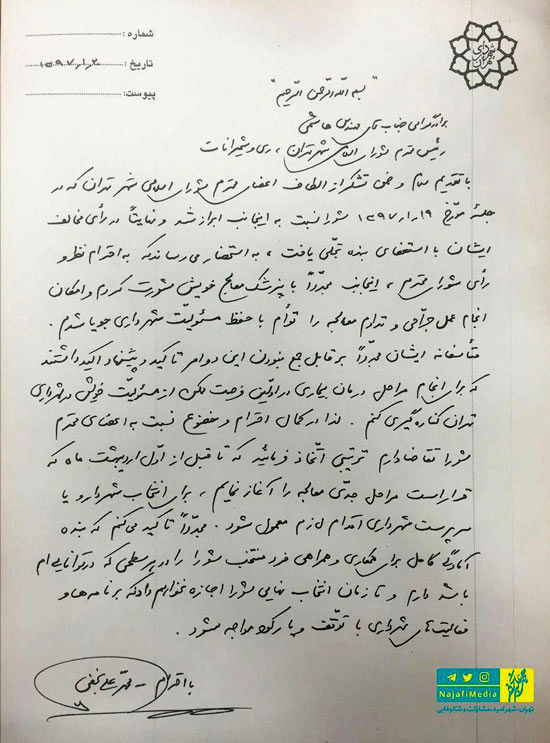 شماره :
تاریخ : ۱۳۹۷/۱/۲۰
پیوست :
شهرداری تهران
"بسم الله الرحمن الرحیم"
برادر گرامی جناب آقای مهندس هاشمی
رئیس محترم شورای اسلامی شهر تهران، ری و شمیرانات
با تقدیم سلام و ضمن تشکر از الطاف اعضای محترم شورای اسلامی شهر تهران که در
جلسه مورخ ۱۹/۱/۱۳۹۷ شورا نسبت به اینجانب ابراز شد و نهایتاً در رأی مخالف
ایشان با استعفای بنده تجلّی یافت، به استحضار می رساند که به احترام نظر و
رأی شورای محترم، اینجانب مجدّداً با پزشک معالج خویش مشورت کردم و امکان
انجام عمل جراحی و تداوم معالجه را توأم با حفظ مسئولیّت شهرداری جویا شدم.
متأسفانه ایشان مجدّداً بر قابل جمع نبودن این دو امر تاکید و پیشنهاد اکید داشتند
که برای انجام مراحل درمان بیماری در اوّلین فرصت ممکن از مسئولیّت خویش در شهرداری
تهران کناره گیری کنم. لذا در کمال احترام و خضوع نسبت به اعضای محترم
شورا تقاضا دارم ترتیبی اتّخاذ فرمائید که تا قبل از اوّل اردیبهشت ماه که
قرار است مراحل جدّی معالجه را آغاز نمایم، برای انتخاب شهردار و یا
سرپرست شهرداری اقدام لازم معمول شود. مجدّداً تاکید می کنم که بنده
آمادگی کامل برای همکاری و همراهی فرد منتخب شورا را در هر سطحی که در توانایی ام
باشد دارم و تا زمان انتخاب نهایی شورا اجازه نخواهم داد که برنامه ها و
فعالیت های شهرداری با توقّف و یا رکود مواجه شود.
با احترام - محمد علی نجفی
NajafiMedia
تهران؛ شهر امید، مشارکت و شکوفایی